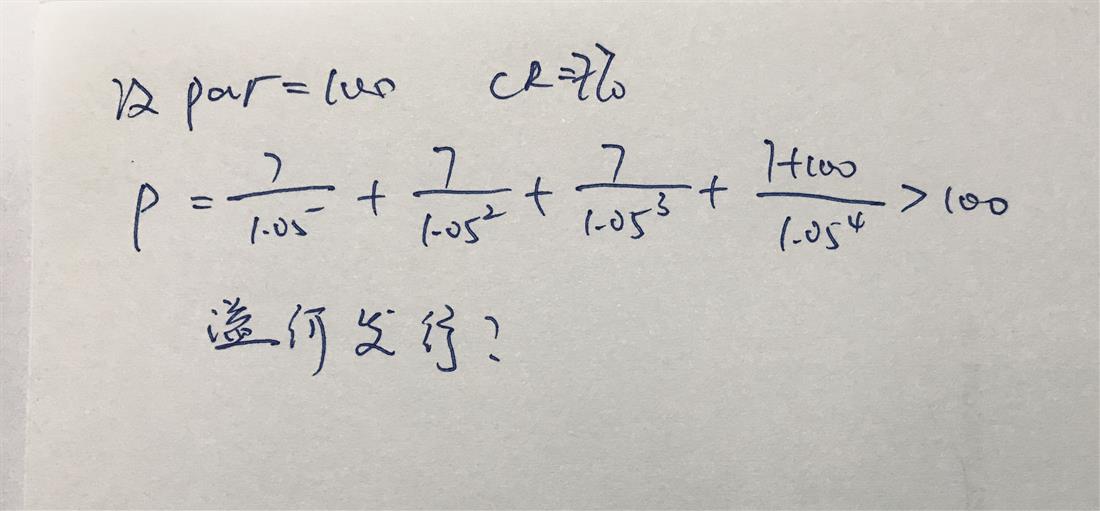 设 par = 100 CR = 7%
P = 7/1.05 + 7/1.05² + 7/1.05³ + 7+100/1.05⁴ > 100
溢价发行?